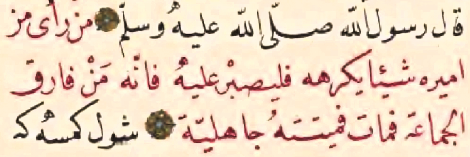 قال رسول الله صلى الله عليه وسلم من رأى من
اميره شيئا يكرهه فليصبر عليه فانه من فارق
الجماعة فمات فميتته جاهلية شول كمسه كه